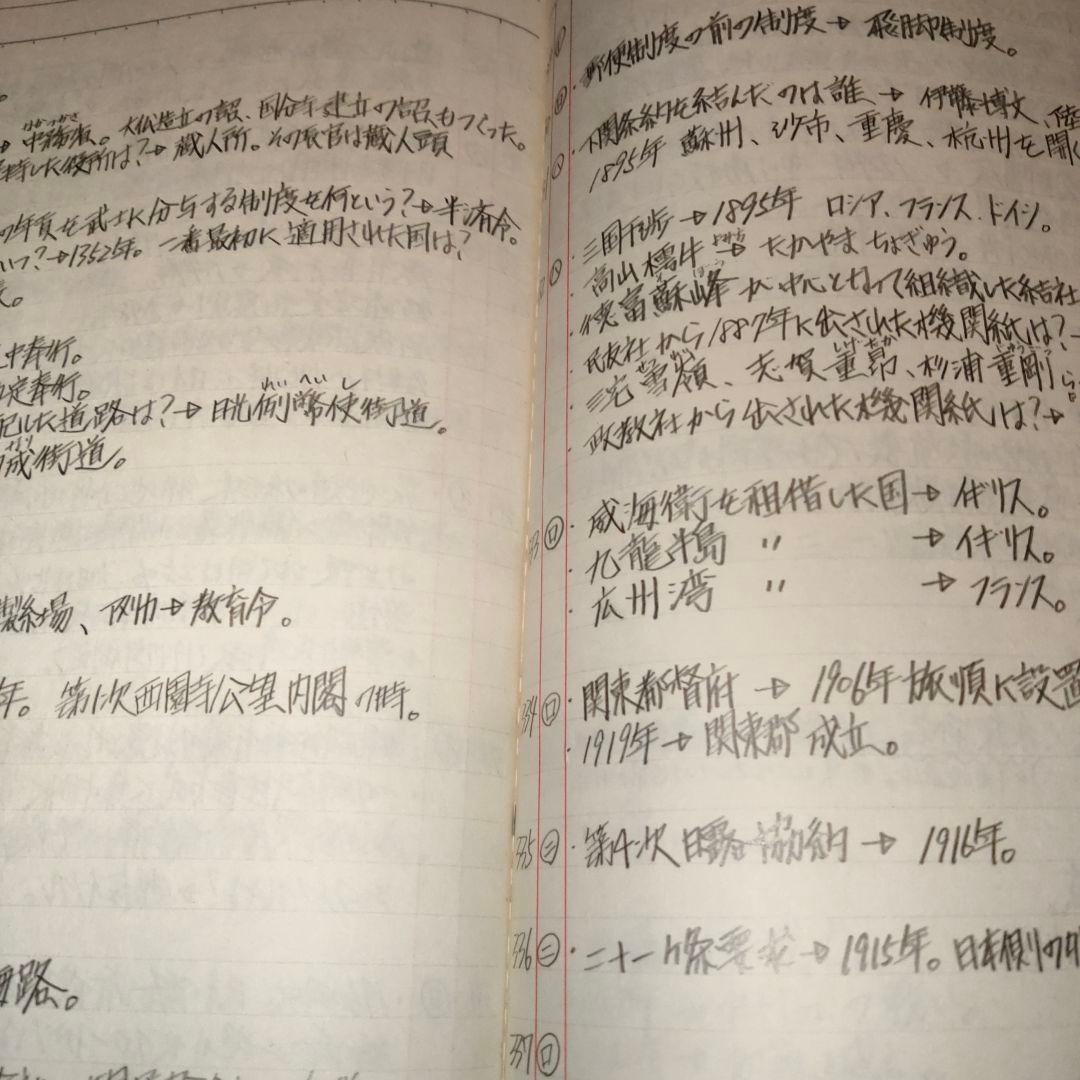 中務省。大仏造立の詔、国分寺建立の詔もつくった。
した役所は?→蔵人所。その長官は蔵人頭
の年貢を武士に分与する制度を何という?→半済令。
いつ?→1352年。一番最初に適用された国は?
奉行。
定奉行。
記した道路は?→日光例幣使街道。
れいへいし
成街道。
製糸場、→教育令。
年。第1次西園寺公望内閣の時。
路。
郵便制度の前の制度→飛脚制度。
下関条約を結んだのは誰→伊藤博文、陸
1895年 蘇州、沙市、重慶、杭州を開く
三国干渉→1895年 ロシア、フランス、ドイツ。
高山樗牛→たかやまちょぎゅう。
徳富蘇峰が中心となって組織した結社
民友社から1887年に出された機関紙は?→
三宅雪嶺、志賀重昂、杉浦重剛ら
政教社から出された機関紙は?→
333 ㊐ ・威海衛を租借した国→イギリス。
・九龍半島 〃 →イギリス。
・広州湾 〃 →フランス。
334 ㊐ ・関東都督府→1906年旅順に設置
・1919年→関東郡成立。
335 ㊂ ・第4次日露協約→1916年。
336 ㊁ ・二十一ヵ条要求→1915年。日本側の
337 ㊐